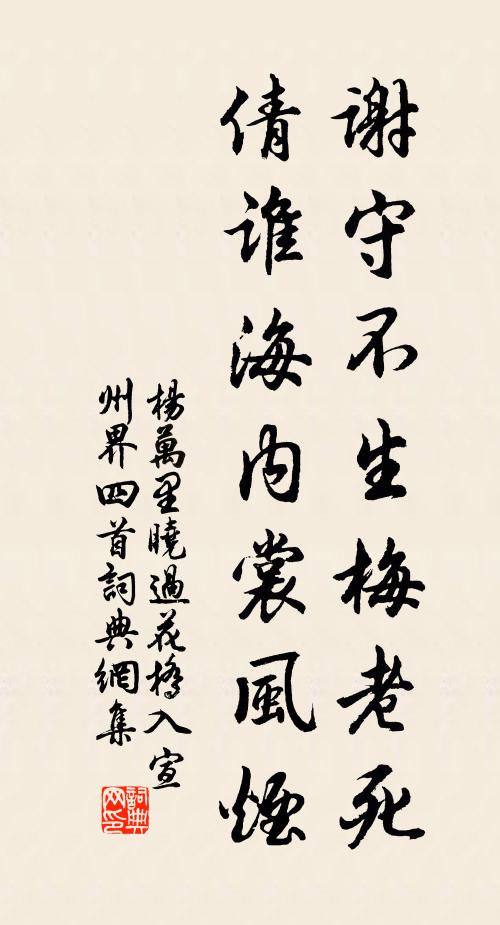 謝守不生梅老死
倩誰海内裳風煙
楊萬里曉過花橋入宣
州界四首詞典網集
詞典
网印